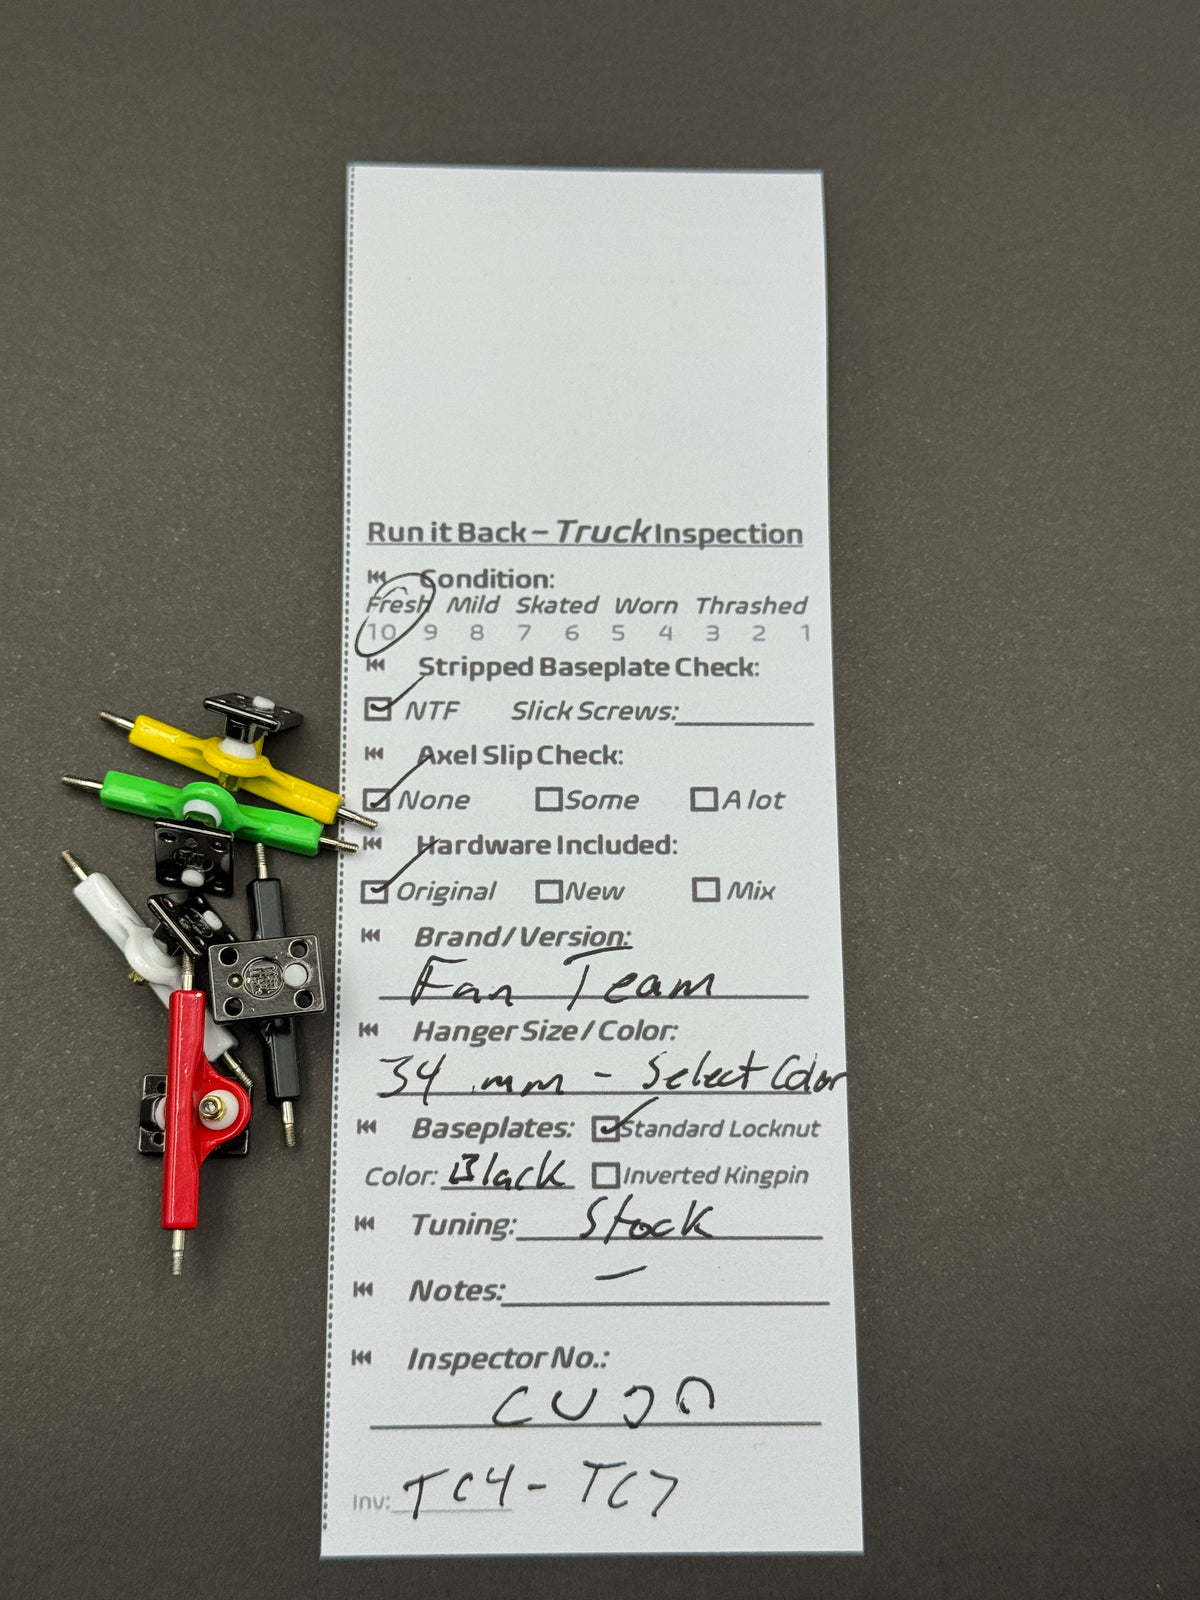 Run it Back – Truck Inspection
Condition:
Fresh Mild Skated Worn Thrashed
10 9 8 7 6 5 4 3 2 1
Stripped Baseplate Check:
NTF Slick Screws:
Axel Slip Check:
None Some A lot
Hardware Included:
Original New Mix
Brand/Version:
Fan Team
Hanger Size/Color:
34 mm - Select Color
Baseplates: Standard Locknut
Color: Black Inverted Kingpin
Tuning: Stock
Notes: —
Inspector No.:
Inv: TC4 - TC7